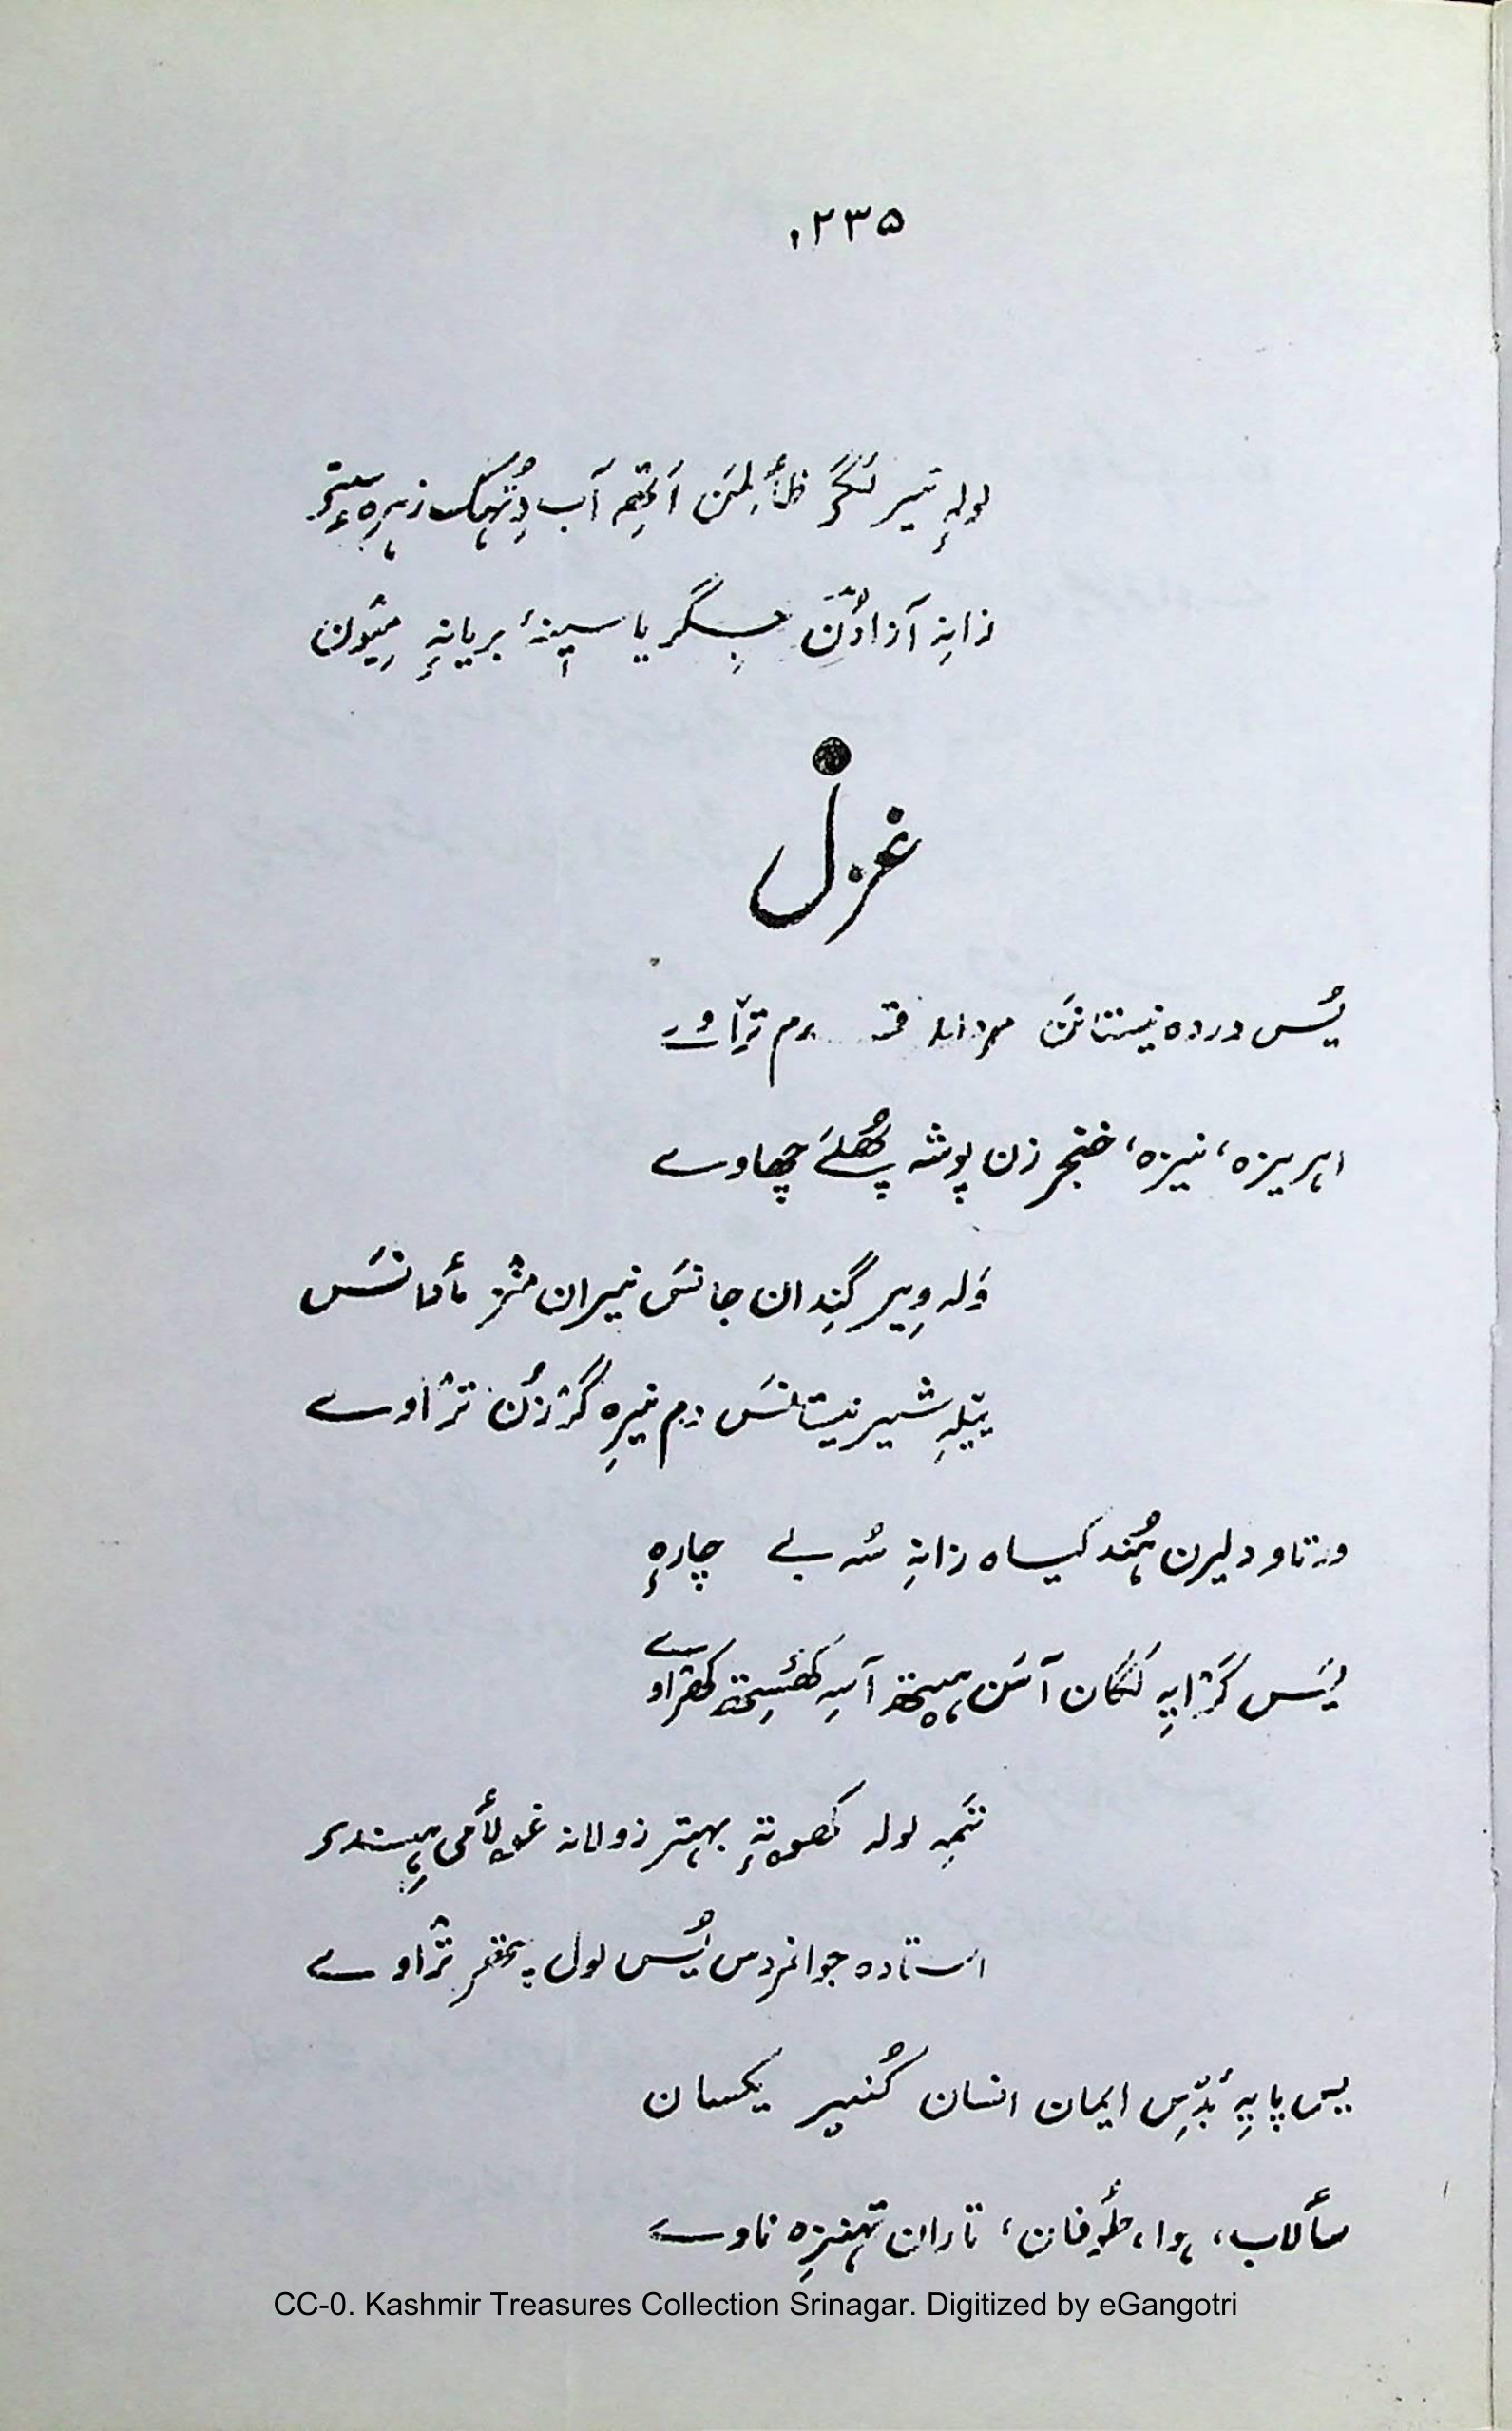 ۲۳۵
لولہٕ تیر لَگَر ظأ لِمَن اَچھِم آب دِتُہک زہرہٕ سٟتؠ
زانہِ آزادُن جِگر یا سیٖنۂ بریانہٕ میٛون
غزل
یُس دردہ نیستانَن مردانہ قدم ترٛاوے
اہریزہ، نیزہ، خنجر زن پوشہ پھُلَے چھاوے
وَلہ وِیر گنِدان جانَس نیران منٛز مأدانَس
ییٚلہِ شیر نیستانَس دم نیرِہ گرٛزُن ترٛاوے
ورتاو دلیرن ہُند کیاہ زانہِ سُہ بے چارہٕ
یَس گرٛایہِ لَگان آسَن ہیچھ آسہِ کھٔسِتھ کھرٛاوے
تَمہِ لولہ کھوتہٕ بہتر زولانہ غولأمی ہِنٛدؠ
استادہ جوانمردس یُس لول پتھر ترٛاوے
یس پایہِ بٔدِس ایمان انسان کُنیر یکسان
سألاب، ہوا، طوٗفان، تاران تہنٛزہ ناوے
CC-0. Kashmir Treasures Collection Srinagar. Digitized by eGangotri